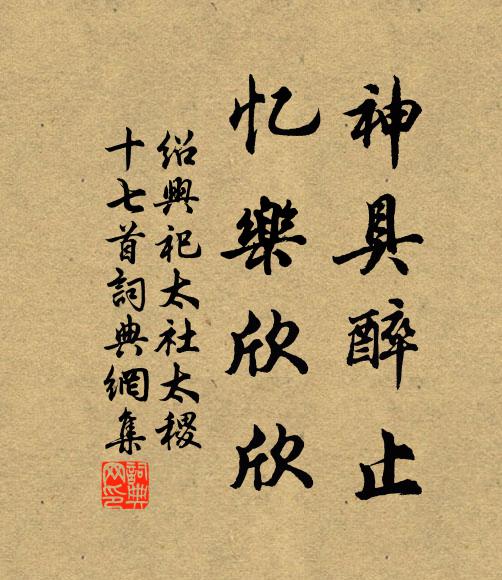 神具醉止
忆樂欣欣
紹興祀太社太稷
十七首詞典網集
詞典
网印